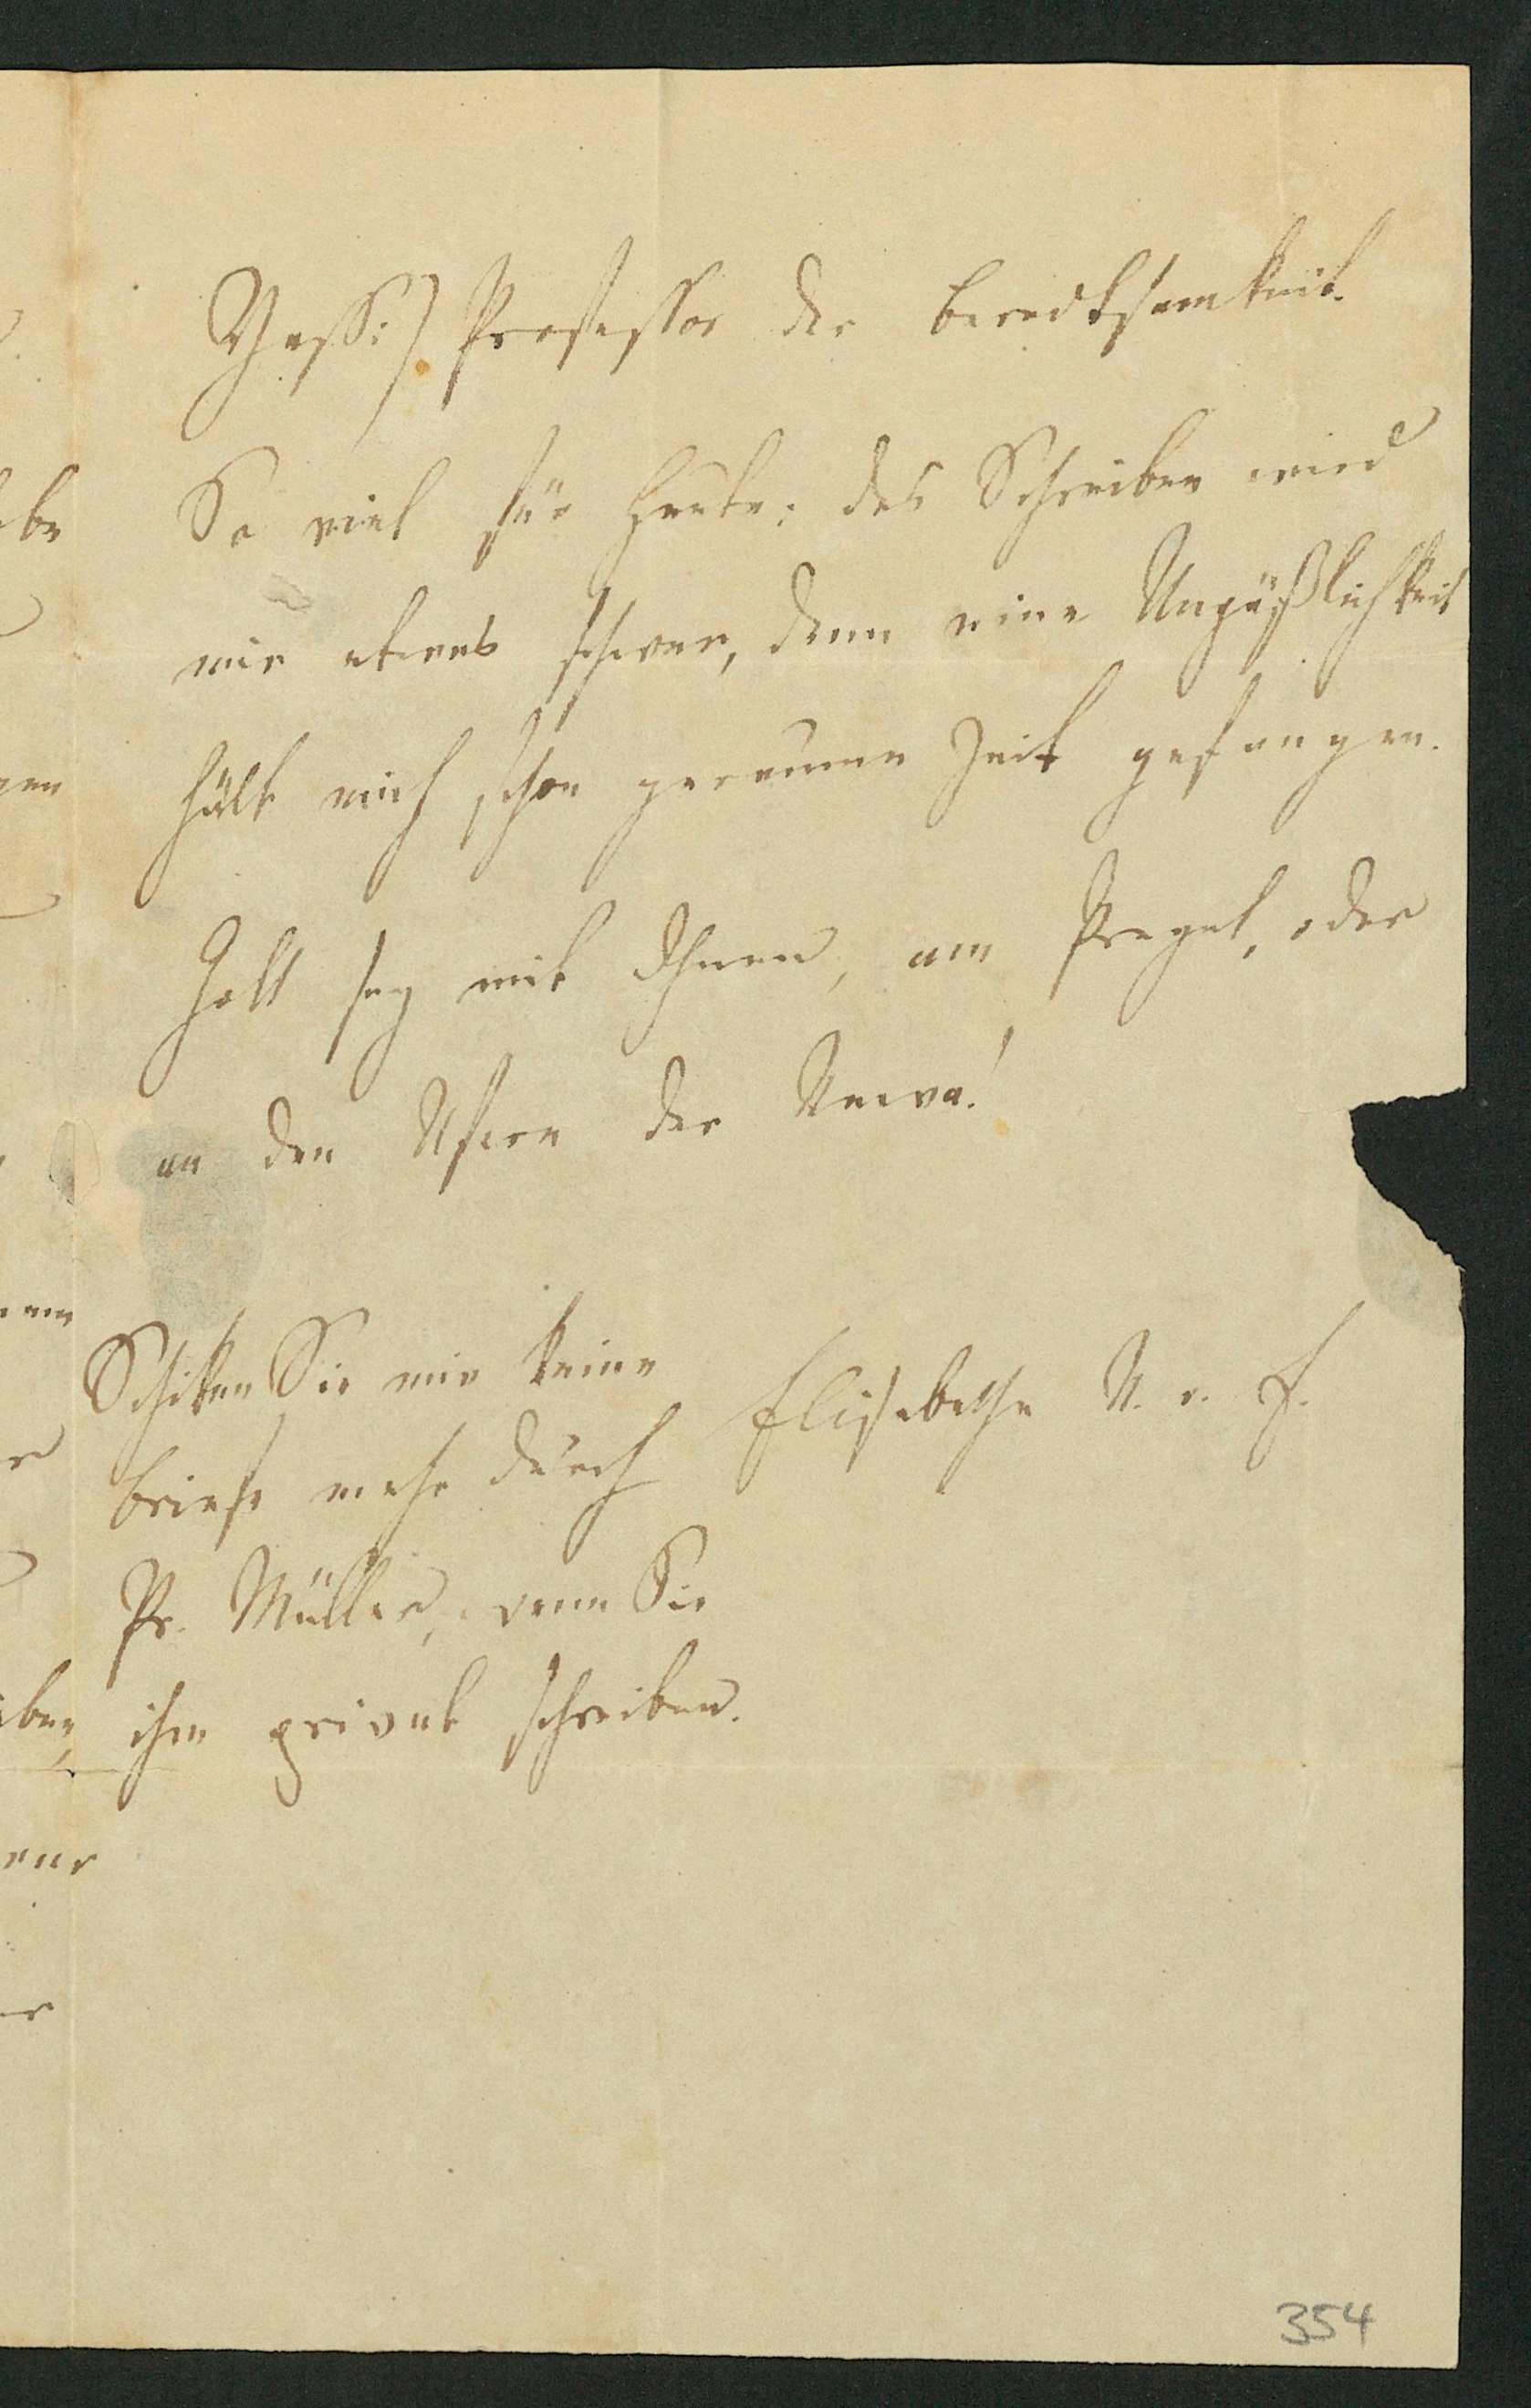 Yassi) Professor der Beredtsamkeit.
So viel für heute; das Schreiben wird
mir etwas schwer, denn eine Unpäßlichkeit
hält mich schon geraume Zeit gefangen.
Gott sey mit Ihnen, am Pregel, oder
an den Ufern der Newa!
Schiken Sie mir keine
Briefe mehr durch
Pr. Müller, wenn Sie
ihm privat schreiben.
Elisabethe N. v. F.
354